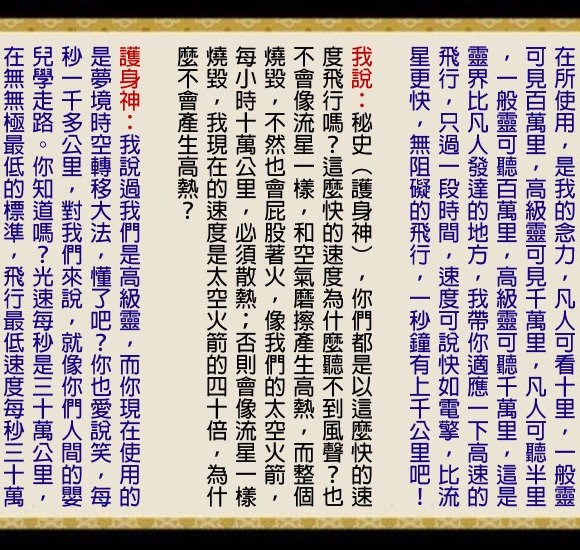 在所使用，是我的念力，凡人可看十里，一般靈
可見百萬里，高級靈可見千萬里，凡人可聽半里
，一般靈可聽百萬里，高級靈可聽千萬里，這是
靈界比凡人發達的地方，我帶你適應一下高速的
飛行，只過一段時間，速度可說快如電擎，比流
星更快，無阻礙的飛行，一秒鐘有上千公里吧！
我說：秘史（護身神），你們都是以這麼快的速
度飛行嗎？這麼快的速度為什麼聽不到風聲？也
不會像流星一樣，和空氣磨擦產生高熱，而整個
燒毀，不然也會屁股著火，像我們的太空火箭，
每小時十萬公里，必須散熱；否則會像流星一樣
燒毀，我現在的速度是太空火箭的四十倍，為什
麼不會產生高熱？
護身神：我說過我們是高級靈，而你現在使用的
是夢境時空轉移大法，懂了吧？你也愛說笑，每
秒一千多公里，對我們來說，就像你們人間的嬰
兒學走路。你知道嗎？光速每秒是三十萬公里，
在無無極最低的標準，飛行最低速度每秒三十萬